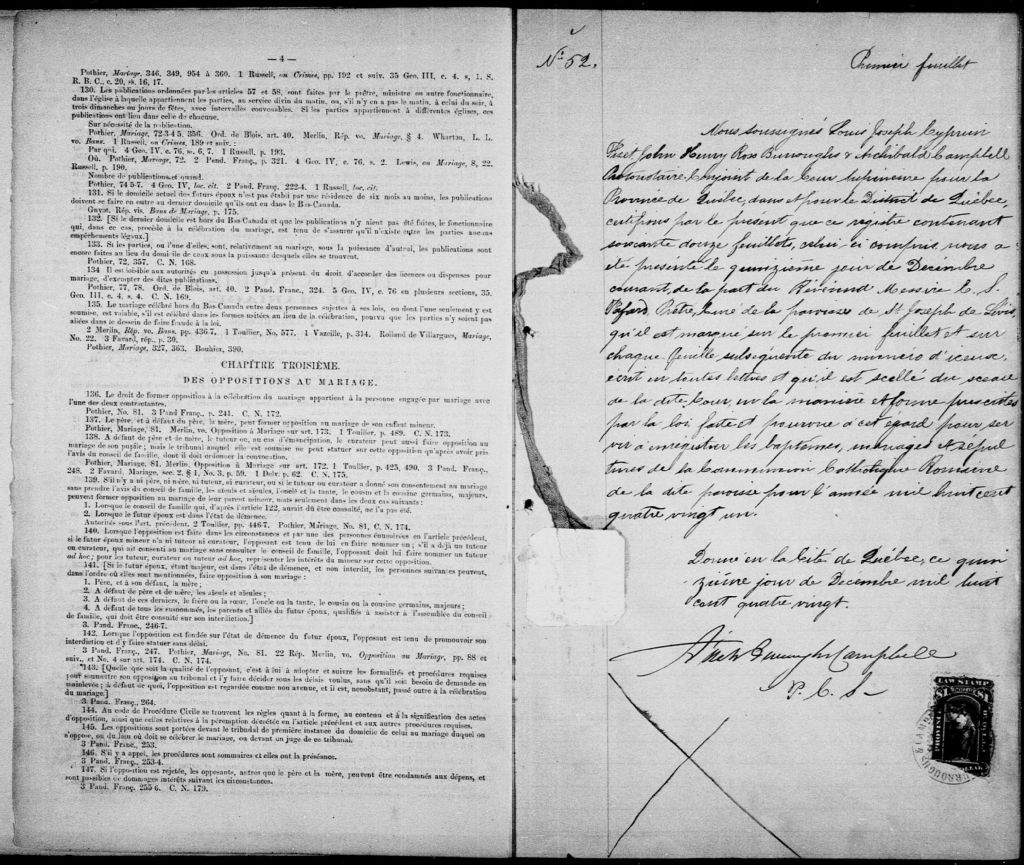 — 4 —
Pothier, Mariage, 346, 349, 954 à 360. 1 Russell, on Crimes, pp. 192 et suiv. 35 Geo. III, c. 4. s, 1. S.
R. B. C., c. 20, s. 16, 17.
130. Les publications ordonnées par les articles 57 et 58, sont faites par le prêtre, ministre ou autre fonctionnaire,
dans l'église à laquelle appartiennent les parties, au service divin du matin, ou, s'il n'y en a pas le matin, à celui du soir, à
trois dimanches ou jours de fêtes, avec intervalles convenables. Si les parties appartiennent à différentes églises, ces
publications ont lieu dans celle de chacune.
Sur nécessité de la publication.
Pothier, Mariage, 72-3-4 5. 356. Ord. de Blois, art. 40. Merlin, Rép. vo. Mariage, § 4. Wharton, L. L.
vo. Bans. 1 Russell, on Crimes, 189 et suiv. :
Par qui. 4 Geo. IV, c. 76, ss. 6, 7. 1 Russell, p. 193.
Où. Pothier, Mariage, 72. 2 Pand. Franç., p. 321. 4 Geo. IV, c. 76, s. 2. Lewis, on Mariage, 8, 22.
Russell, p. 190.
Nombre de publications et quand.
Pothier, 74 5-7. 4 Geo. IV, loc. cit. 2 Pand. Franç. 222-4. 1 Russell, loc. cit.
131. Si le domicile actuel des futurs époux n'est pas établi par une résidence de six mois au moins, les publications
doivent se faire en outre au dernier domicile qu'ils ont eu dans le Bas-Canada.
Guyot, Rép. vis. Bans de Mariage, p. 175.
132. [Si le dernier domicile est hors du Bas-Canada et que les publications n'y aient pas été faites, le fonctionnaire
qui, dans ce cas, procède à la célébration du mariage, est tenu de s'assurer qu'il n'existe entre les parties aucuns
empêchements légaux.]
133. Si les parties, ou l'une d'elles, sont, relativement au mariage, sous la puissance d'autrui, les publications sont
encore faites au lieu du domicile de ceux sous la puissance desquels elles se trouvent.
Pothier, 72, 357. C. N. 168.
134 Il est loisible aux autorités en possession jusqu'à présent du droit d'accorder des licences ou dispenses pour
mariage, d'exempter des dites publications.
Pothier, 77, 78. Ord. de Blois, art. 40. 2 Pand. Franç., 324. 5 Geo. IV, c. 76 en plusieurs sections, 35.
Geo. III, c. 4, s. 4. C. N. 169.
135. Le mariage célébré hors du Bas-Canada entre deux personnes sujettes à ses lois, ou dont l'une seulement y est
soumise, est valable, s'il est célébré dans les formes usitées au lieu de la célébration, pourvu que les parties n'y soient pas
allées dans le dessein de faire fraude à la loi.
2 Merlin, Rép. vo. Bans, pp. 436-7. 1 Toullier, No, 577. 1 Vazeille, p. 314. Rolland de Villargues, Mariage,
No. 22. 3 Favard, rép., p. 30.
Pothier, Mariage, 327, 363. Bouhier, 390.
CHAPÎTRE TROISIÈME.
DES OPPOSITIONS AU MARIAGE.
136. Le droit de former opposition à la célébration du mariage appartient à la personne engagée par mariage avec
l'une des deux contractantes.
Pothier, No. 81. 3 Pand Franç., p. 241. C. N. 172.
137. Le père, et à défaut du père, la mère, peut former opposition au mariage de son enfant mineur.
Pothier, Mariage, 81. Merlin, vo. Opposition à Mariage sur art. 173. 1 Toullier, p. 489. C. N. 173.
138. A défaut de père et de mère, le tuteur ou, au cas d'émancipation, le curateur peut aussi faire opposition au
mariage de son pupille ; mais le tribunal auquel elle est soumise ne peut statuer sur cette opposition qu'après avoir pris
l'avis du conseil de famille, dont il doit ordonner la convocation.
Pothier, Mariage, 81. Merlin, Opposition à Mariage sur art. 172. 1 Toullier, p. 425, 490. 3 Pand. Franç.,
248. 2 Favard, Mariage, sec. 5, § 1, No. 3, p. 59. 1 Delv. p. 62. C. N. 175.
139. S'il n'y a ni père, ni mère, ni tuteur, ni curateur, ou si le tuteur ou curateur a donné son consentement au mariage
sans prendre l'avis du conseil de famille, les aïeuls et aïeules, l'oncle et la tante, le cousin et la cousine germains, majeurs,
peuvent former opposition au mariage de leur parent mineur, mais seulement dans les deux cas suivants :
1. Lorsque le conseil de famille qui, d'après l'article 122, aurait dû être consulté, ne l'a pas été.
2. Lorsque le futur époux est dans l'état de démence.
Autorités sous l'art. précédent. 2 Toullier, pp. 446-7. Pothier, Mariage, No. 81, C. N. 174.
140. Lorsque l'opposition est faite dans les circonstances et par une des personnes énumérées en l'article précédent,
si le futur époux mineur n'a ni tuteur ni curateur, l'opposant est tenu de lui en faire nommer un ; s'il a déjà un tuteur
ou curateur, qui ait consenti au mariage sans consulter le conseil de famille, l'opposant doit lui faire nommer un tuteur
ad hoc ; pour les tuteur, curateur ou tuteur ad hoc, représenter les intérêts du mineur sur cette opposition.
141. [Si le futur époux, étant majeur, est dans l'état de démence, et non interdit, les personnes suivantes peuvent,
dans l'ordre où elles sont mentionnées, faire opposition à son mariage :
1. Père, et à son défaut, la mère ;
2. A défaut de père et de mère, les aïeuls et aïeules ;
3. A défaut de ces derniers, le frère ou la sœur, l'oncle ou la tante, le cousin ou la cousine germains, majeurs ;
4. A défaut de tous les susnommés, les parents et alliés du futur époux, qualifiés à assister à l'assemblée du conseil
de famille, qui doit être consulté sur son interdiction.]
3. Pand. Franc., 246-7.
142. Lorsque l'opposition est fondée sur l'état de démence du futur époux, l'opposant est tenu de promouvoir son
interdiction et d'y faire statuer sans délai.
3 Pand Franç., 247. Pothier, Mariage, No. 81. 22 Rép. Merlin, vo. Opposition au Mariage, pp. 88 et
suiv., et No. 4 sur art. 174. C. N. 174.
143. [Quelle que soit la qualité de l'opposant, c'est à lui à adopter et suivre les formalités et procédures requises
pour soumettre son opposition au tribunal et l'y faire décider sous les délais voulus, sans qu'il soit besoin de demande en
mainlevée ; à défaut de quoi, l'opposition est regardée comme non avenue, et il est, nonobstant, passé outre à la célébration
du mariage.]
3 Pand. Franç., 264.
144. Au code de Procédure Civile se trouvent les règles quant à la forme, au contenu et à la signification des actes
d'opposition, ainsi que celles relatives à la péremption décrétée en l'article précédent et aux autres procédures requises.
145. Les oppositions sont portées devant le tribunal de première instance du domicile de celui au mariage duquel on
s'oppose, ou du lieu où doit se célébrer le mariage, ou devant un juge de ce tribunal.
3 Pand. Franç., 253.
146. S'il y a appel, les procédures sont sommaires et elles ont la préséance.
3 Pand. Franç., 253-4.
147. Si l'opposition est rejetée, les opposants, autres que le père et la mère, peuvent être condamnés aux dépens, et
sont passibles de dommages intérêts suivant les circonstances.
3 Pand. Franç. 255 6. C. N. 179.
No. 52.
Premier feuillet
Nous soussignés Louis Joseph Cyprien
Fiset John Henry Ross Burroughs & Archibald Campbell
Protonotaire Conjoint de la Cour Supérieure pour la
Province de Québec, dans et pour le District de Québec,
certifions par le présent que ce registre contenant
soixante douze feuillets, celui-ci compris nous a
été présenté le quinzième jour de Décembre
courant, de la part du Révérend Messire E. S.
Fafard, Prêtre, Curé de la paroisse de St. Joseph de Lévis,
qu'il est marqué sur le premier feuillet et sur
chaque feuille subséquente du numéro d'iceux,
écrit en toutes lettres et qu'il est scellé du sceau
de la dite Cour, en la manière et forme prescrites
par la loi faite et pourvue à cet égard pour ser
vir à enregistrer les baptêmes, mariages et sépul
tures de la Communion Catholique Romaine
de la dite paroisse pour l'année mil huit cent
quatre vingt un.
Donné en la Cité de Québec, ce quin
zième jour de Décembre mil huit
cent quatre vingt.
Fiset Burroughs Campbell
P. C. S.
LAW STAMP
$1 $1